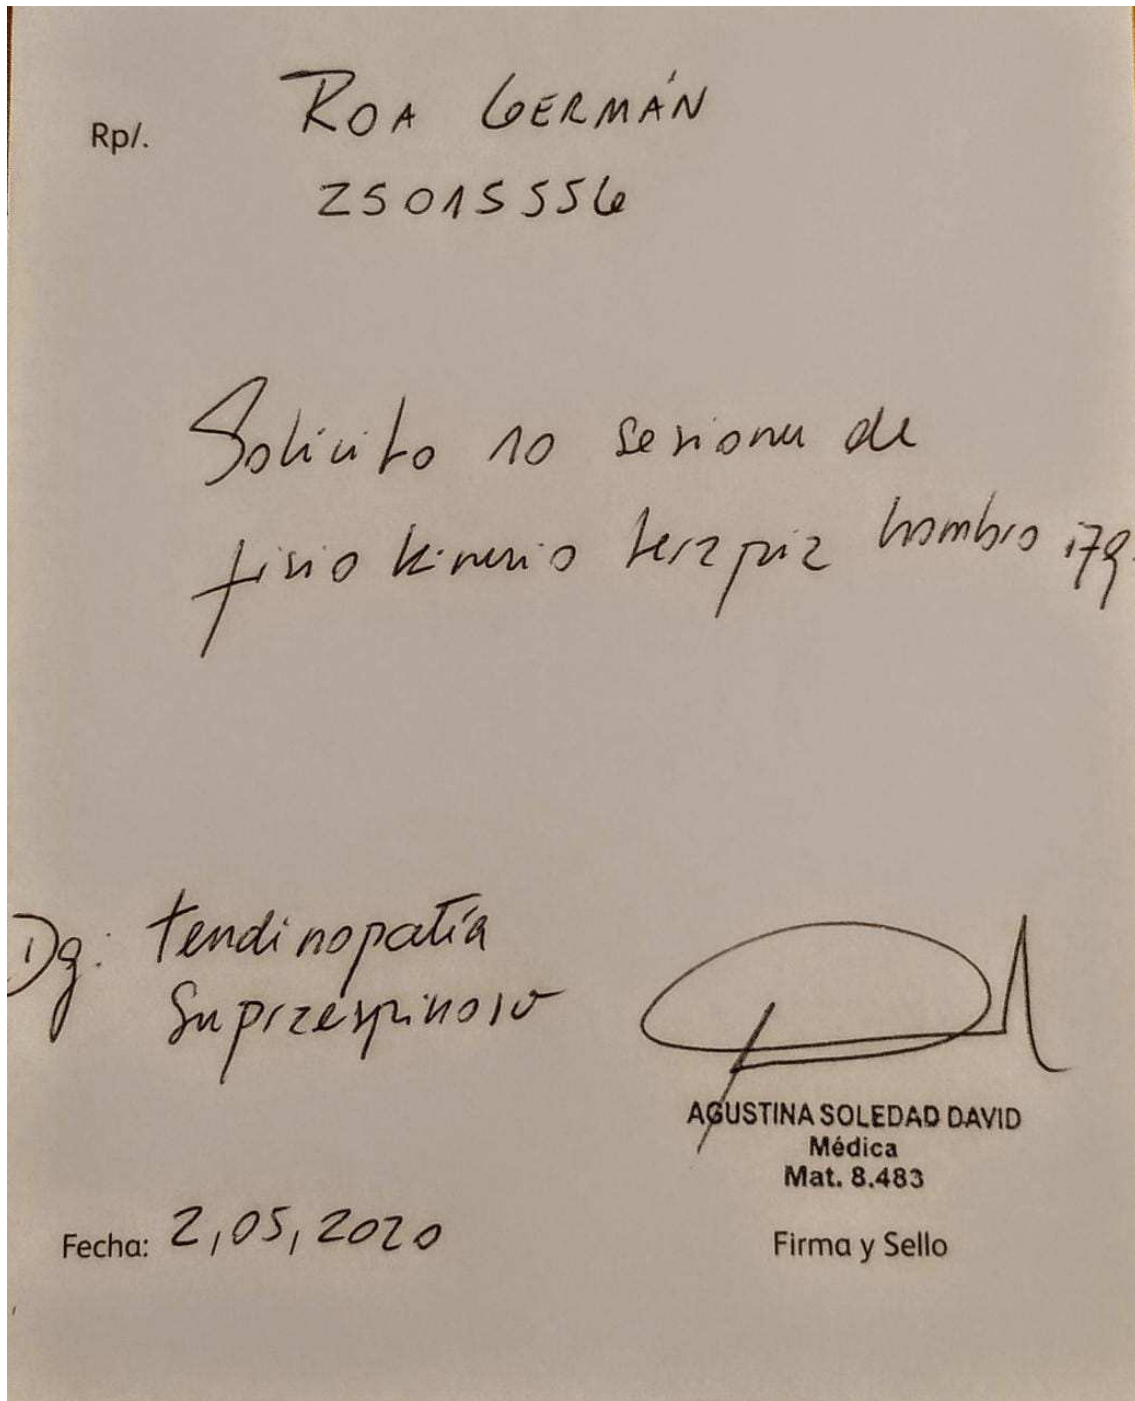 Rp/.
ROA GERMÁN
25015556
Solicito 10 sesiones de
fisio kinesio terapia hombro izq.
Dg: tendinopatía
Supraespinoso
AGUSTINA SOLEDAD DAVID
Médica
Mat. 8.483
Fecha: 2,05,2020
Firma y Sello